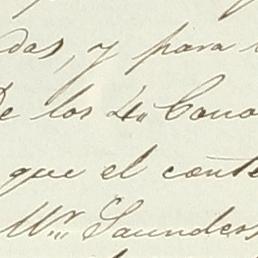 das, y para
De los 4" Cano
que el conte
Mr. Saunders